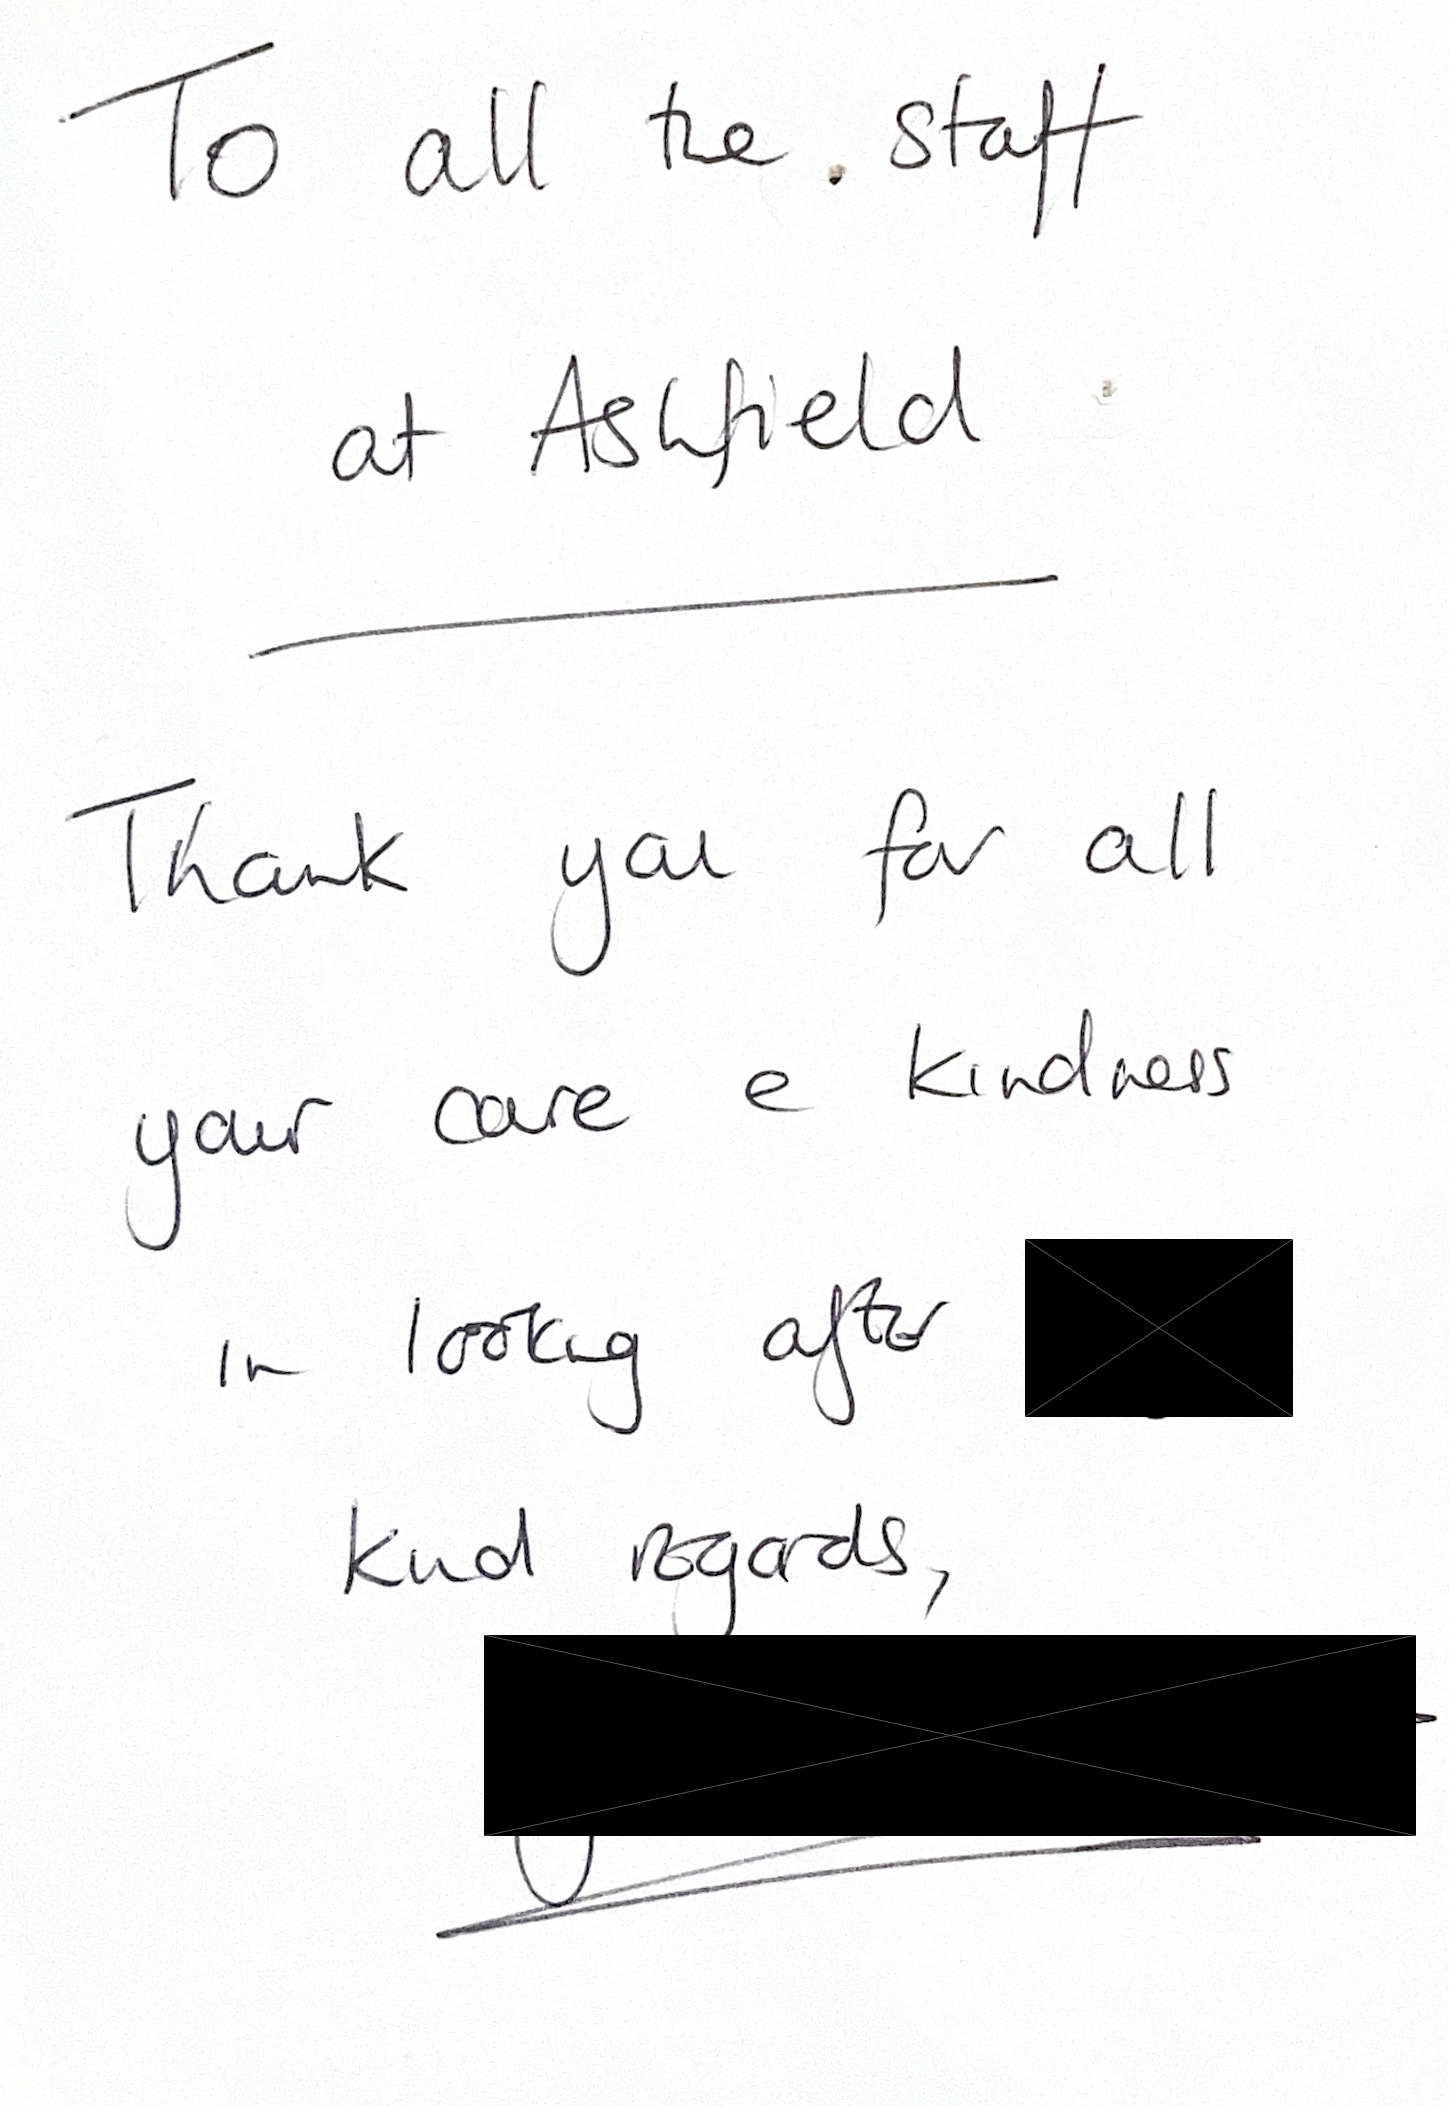 To all the staff
at Ashfield
Thank you for all
your care e kindness
in looking after
Kind regards,